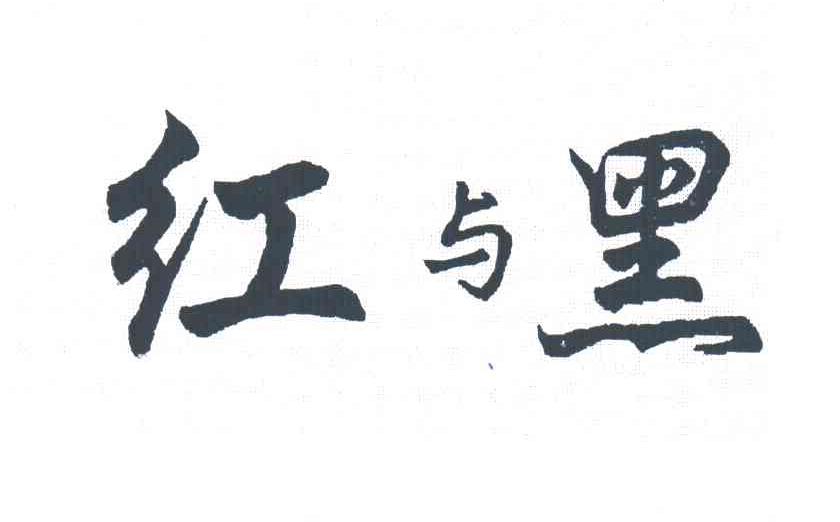 红与黑